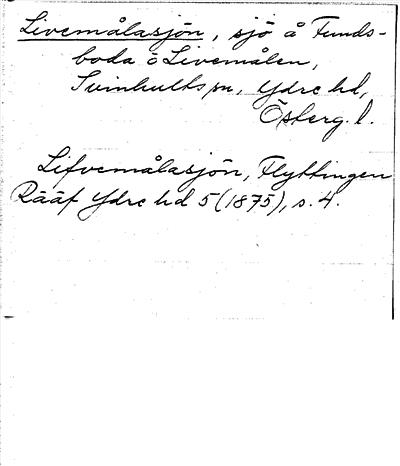 Livemålasjön, sjö å Funds-
boda o Livemålen,
Svinhults sn, Ydre hd,
Österg. l.
Lifvemålasjön, Flyttingen
Rääf Ydre hd 5 (1875), s. 4.